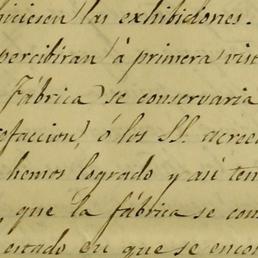 iciesen las exhibiciones.
percibiran á primera vist
Fábrica) se conservaria
efaccion), ó los SS. acree
hemos logrado y asi ten
, que la fábrica se con
estado en que se encon